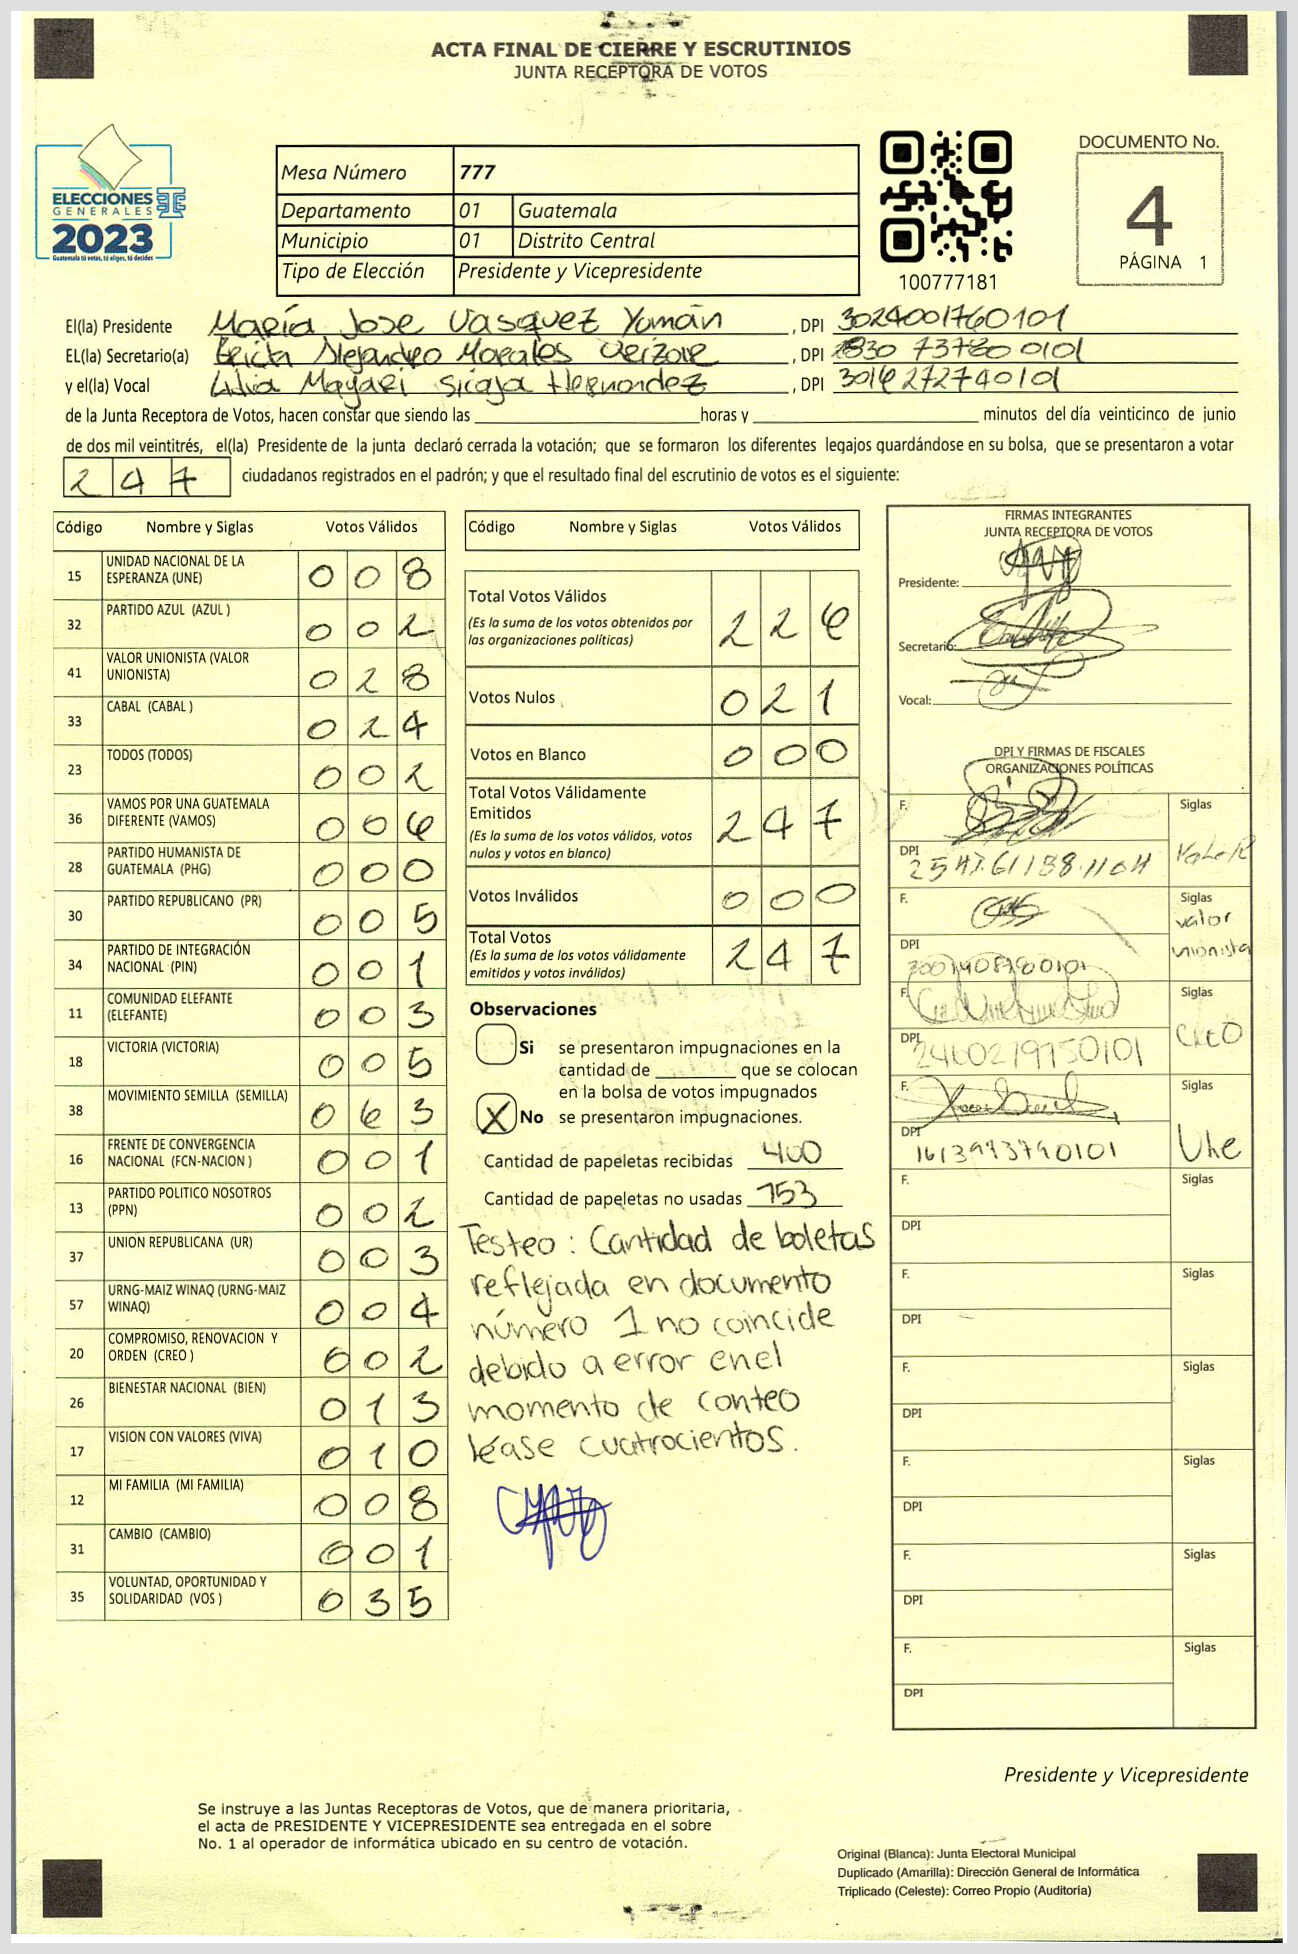 ACTA FINAL DE CIERRE Y ESCRUTINIOS
JUNTA RECEPTORA DE VOTOS
ELECCIONES
GENERALES
2023
Guatemala tú votas, tú eliges, tú decides
Mesa Número 777
Departamento 01 Guatemala
Municipio 01 Distrito Central
Tipo de Elección Presidente y Vicepresidente
100777181
DOCUMENTO No.
4
PÁGINA 1
El(la) Presidente María Jose Vasquez Yumán , DPI 3024001760101
EL(la) Secretario(a) Alejandro Morales , DPI
y el(la) Vocal Lilia Mayari Sicaja Hernandez , DPI 3014272740101
de la Junta Receptora de Votos, hacen constar que siendo las horas y minutos del día veinticinco de junio
de dos mil veintitrés, el(la) Presidente de la junta declaró cerrada la votación; que se formaron los diferentes legajos guardándose en su bolsa, que se presentaron a votar
247 ciudadanos registrados en el padrón; y que el resultado final del escrutinio de votos es el siguiente:
Código Nombre y Siglas Votos Válidos
15 UNIDAD NACIONAL DE LA ESPERANZA (UNE) 008
32 PARTIDO AZUL (AZUL ) 002
41 VALOR UNIONISTA (VALOR UNIONISTA) 028
33 CABAL (CABAL ) 024
23 TODOS (TODOS) 002
36 VAMOS POR UNA GUATEMALA DIFERENTE (VAMOS) 006
28 PARTIDO HUMANISTA DE GUATEMALA (PHG) 000
30 PARTIDO REPUBLICANO (PR) 005
34 PARTIDO DE INTEGRACIÓN NACIONAL (PIN) 001
11 COMUNIDAD ELEFANTE (ELEFANTE) 003
18 VICTORIA (VICTORIA) 005
38 MOVIMIENTO SEMILLA (SEMILLA) 063
16 FRENTE DE CONVERGENCIA NACIONAL (FCN-NACION ) 001
13 PARTIDO POLITICO NOSOTROS (PPN) 002
37 UNION REPUBLICANA (UR) 003
57 URNG-MAIZ WINAQ (URNG-MAIZ WINAQ) 004
20 COMPROMISO, RENOVACION Y ORDEN (CREO ) 002
26 BIENESTAR NACIONAL (BIEN) 013
17 VISION CON VALORES (VIVA) 010
12 MI FAMILIA (MI FAMILIA) 008
31 CAMBIO (CAMBIO) 001
35 VOLUNTAD, OPORTUNIDAD Y SOLIDARIDAD (VOS ) 035
Código Nombre y Siglas Votos Válidos
Total Votos Válidos 226
(Es la suma de los votos obtenidos por
las organizaciones políticas)
Votos Nulos 021
Votos en Blanco 000
Total Votos Válidamente
Emitidos 247
(Es la suma de los votos válidos, votos
nulos y votos en blanco)
Votos Inválidos 000
Total Votos 247
(Es la suma de los votos válidamente
emitidos y votos inválidos)
Observaciones
Si se presentaron impugnaciones en la
cantidad de que se colocan
en la bolsa de votos impugnados
X No se presentaron impugnaciones.
Cantidad de papeletas recibidas 400
Cantidad de papeletas no usadas 153
Testeo: Cantidad de boletas
reflejada en documento
número 1 no coincide
debido a error en el
momento de conteo
léase cuatrocientos.
FIRMAS INTEGRANTES
JUNTA RECEPTORA DE VOTOS
Presidente:
Secretario:
Vocal:
DPI Y FIRMAS DE FISCALES
ORGANIZACIONES POLÍTICAS
F. Siglas
DPI Valor
F. Siglas
valor
DPI unionista
F. Siglas
DPI 2460219950101 CREO
F. Siglas
DPI 1613993790101 Une
F. Siglas
DPI
F. Siglas
DPI
F. Siglas
DPI
F. Siglas
DPI
F. Siglas
DPI
F. Siglas
DPI
Presidente y Vicepresidente
Se instruye a las Juntas Receptoras de Votos, que de manera prioritaria,
el acta de PRESIDENTE Y VICEPRESIDENTE sea entregada en el sobre
No. 1 al operador de informática ubicado en su centro de votación.
Original (Blanca): Junta Electoral Municipal
Duplicado (Amarilla): Dirección General de Informática
Triplicado (Celeste): Correo Propio (Auditoría)